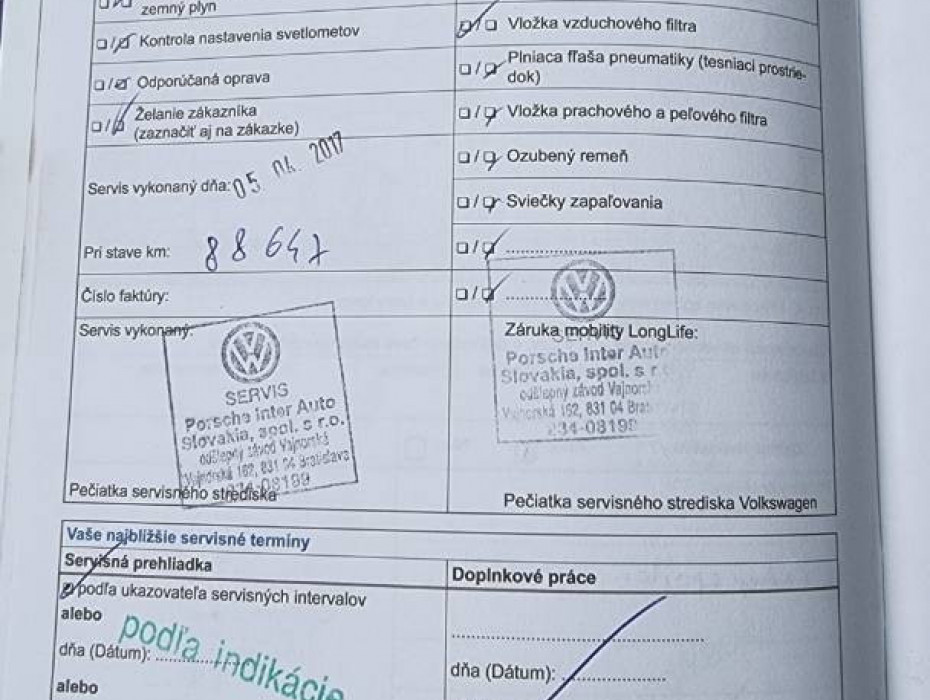 zemný plyn
Kontrola nastavenia svetlometov
Odporúčaná oprava
Želanie zákazníka
(zaznačiť aj na zákazke)
Servis vykonaný dňa: 05. 2017
Pri stave km: 88 647
Číslo faktúry:
Servis vykonaný:
SERVIS
Porsche Inter Auto
Slovakia, spol. s r.o.
odštepný závod Vajnorská
Vajnorská 162, 831 04 Bratislava
234-08199
Pečiatka servisného strediska
Vložka vzduchového filtra
Plniaca fľaša pneumatiky (tesniaci prostrie-
dok)
Vložka prachového a peľového filtra
Ozubený remeň
Sviečky zapaľovania
Záruka mobility LongLife:
SERVIS
Porsche Inter Auto
Slovakia, spol. s r.
odštepný závod Vajnorsk
Vajnorská 162, 831 04 Bra
234-08199
Pečiatka servisného strediska Volkswagen
Vaše najbližšie servisné termíny
Servisná prehliadka
podľa ukazovateľa servisných intervalov
alebo
dňa (Dátum):
podľa indikácie
alebo
Doplnkové práce
dňa (Dátum):